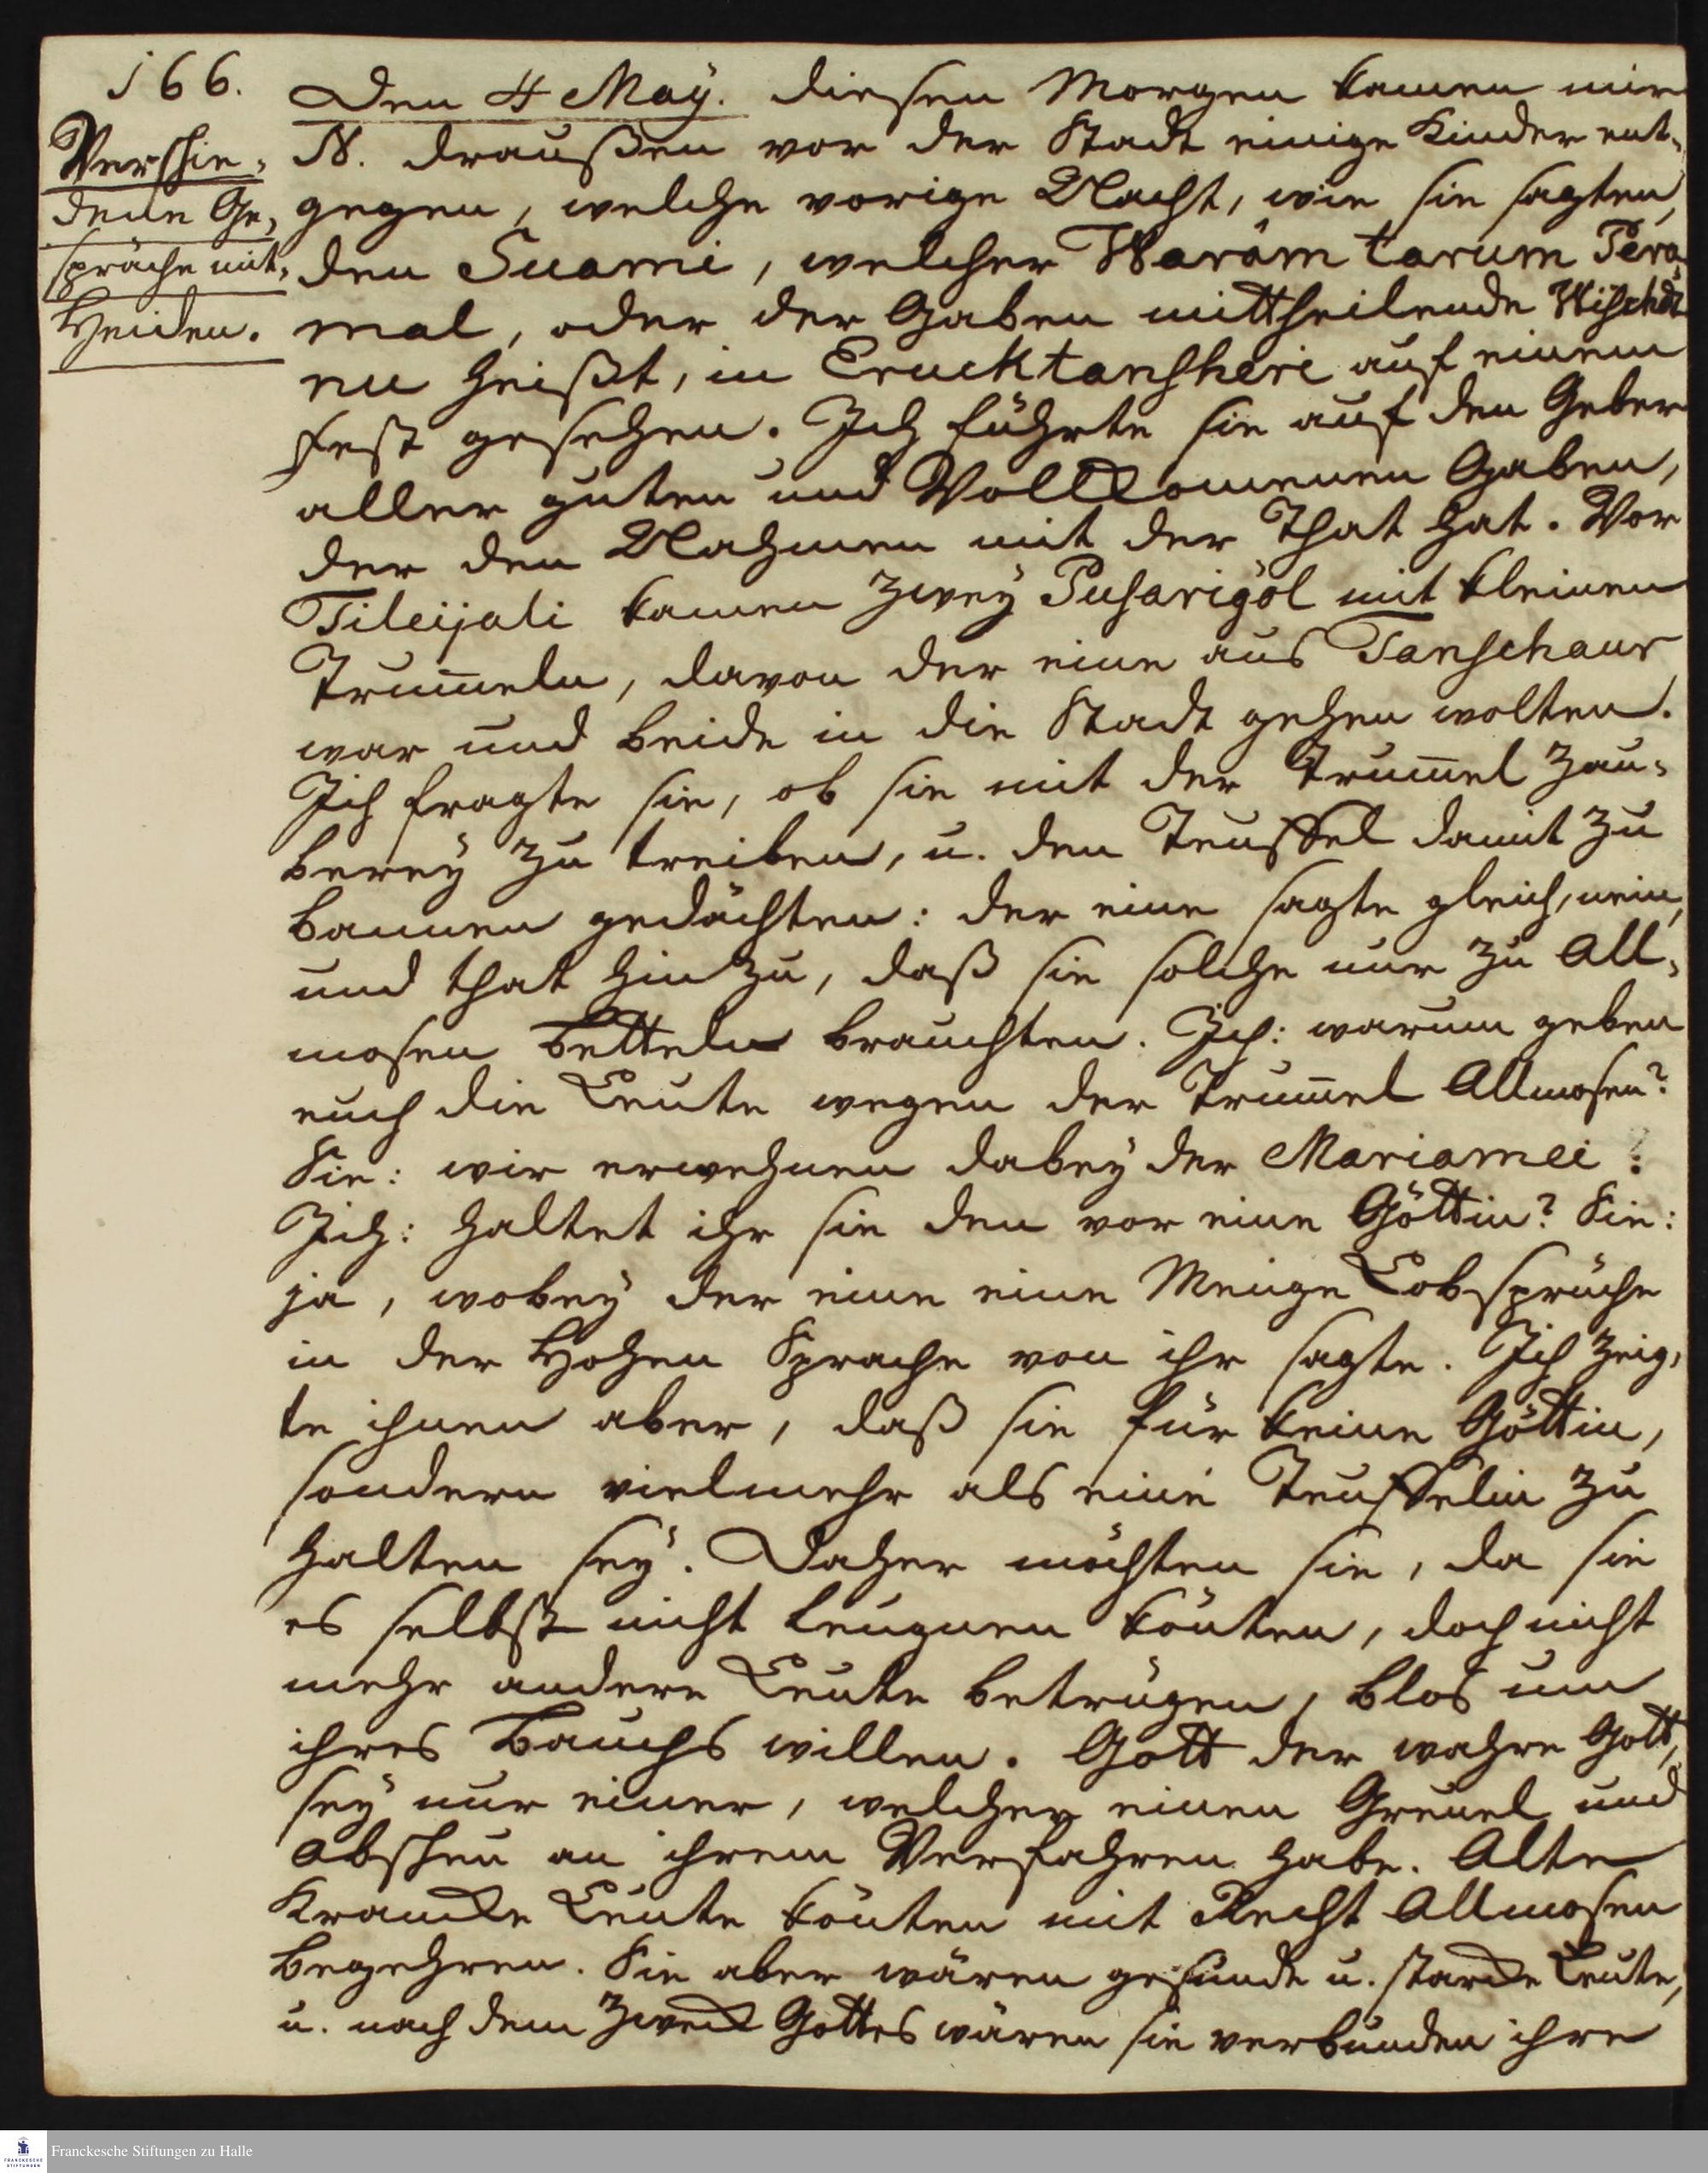 166.
Verschie-
dene Ge-
spräche mit
Heiden.
Den 4 May. diesen Morgen kamen mir
N. draußen vor der Stadt einige Kinder ent-
gegen, welche vorige Nacht, wie sie sagten,
den Suami, welcher Waràm tarum Peru
mal, oder der Gaben mittheilende Wischdt
nu heißt, in Erucktanscheri auf einem
fest gesehen. Ich führte sie auf den Geber
aller guten und Vollkommenen Gaben,
der den Nahmen mit der That hat. Vor
Tileijali kamen zwey Pusarigöl mit kleinen
Trum̄eln, davon der eine aus Tanschaur
war und beide in die Stadt gehen wolten.
Ich fragte sie, ob sie mit der Trum̄el Zau-
berey zu treiben, u. den Teuffel damit zu
bannen gedächten: der eine sagte gleich, nein,
und that hinzu, daß sie solche nur zu All-
mosen betteln brauchten. Ich: warum geben
euch die Leute wegen der Trum̄el Allmosen?
Sie: wir erwehnen dabey der Mariamei?
Ich: haltet ihr sie den vor eine Göttin? Sie:
ja, wobey der eine eine Menge Lobsprüche
in der Hohen Sprache von ihr sagte. Ich zeig-
te ihnen aber, daß sie für keine Göttin,
sondern vielmehr als eine Teuffelin zu
halten sey. Daher möchten sie, da sie
es selbst nicht leugnen könten, doch nicht
mehr andere Leute betrügen, blos um
ihres Bauchs willen. Gott der wahre Gott,
sey nur einer, welcher einen Greuel und
Abscheu an ihrem Verfahren habe. Alte
Krancke Leute könten mit Recht Allmosen
begehren. Sie aber wären gesunde u. starcke Leute,
u. nach dem Zweck Gottes wären sie verbunden ihre
Franckesche Stiftungen zu Halle
FRANCKESCHE
STIFTUNGEN